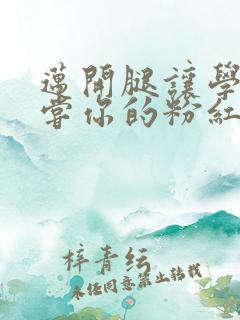 邁開腿讓學
嘗你的粉紅
梓青纭
未经同意禁止转载